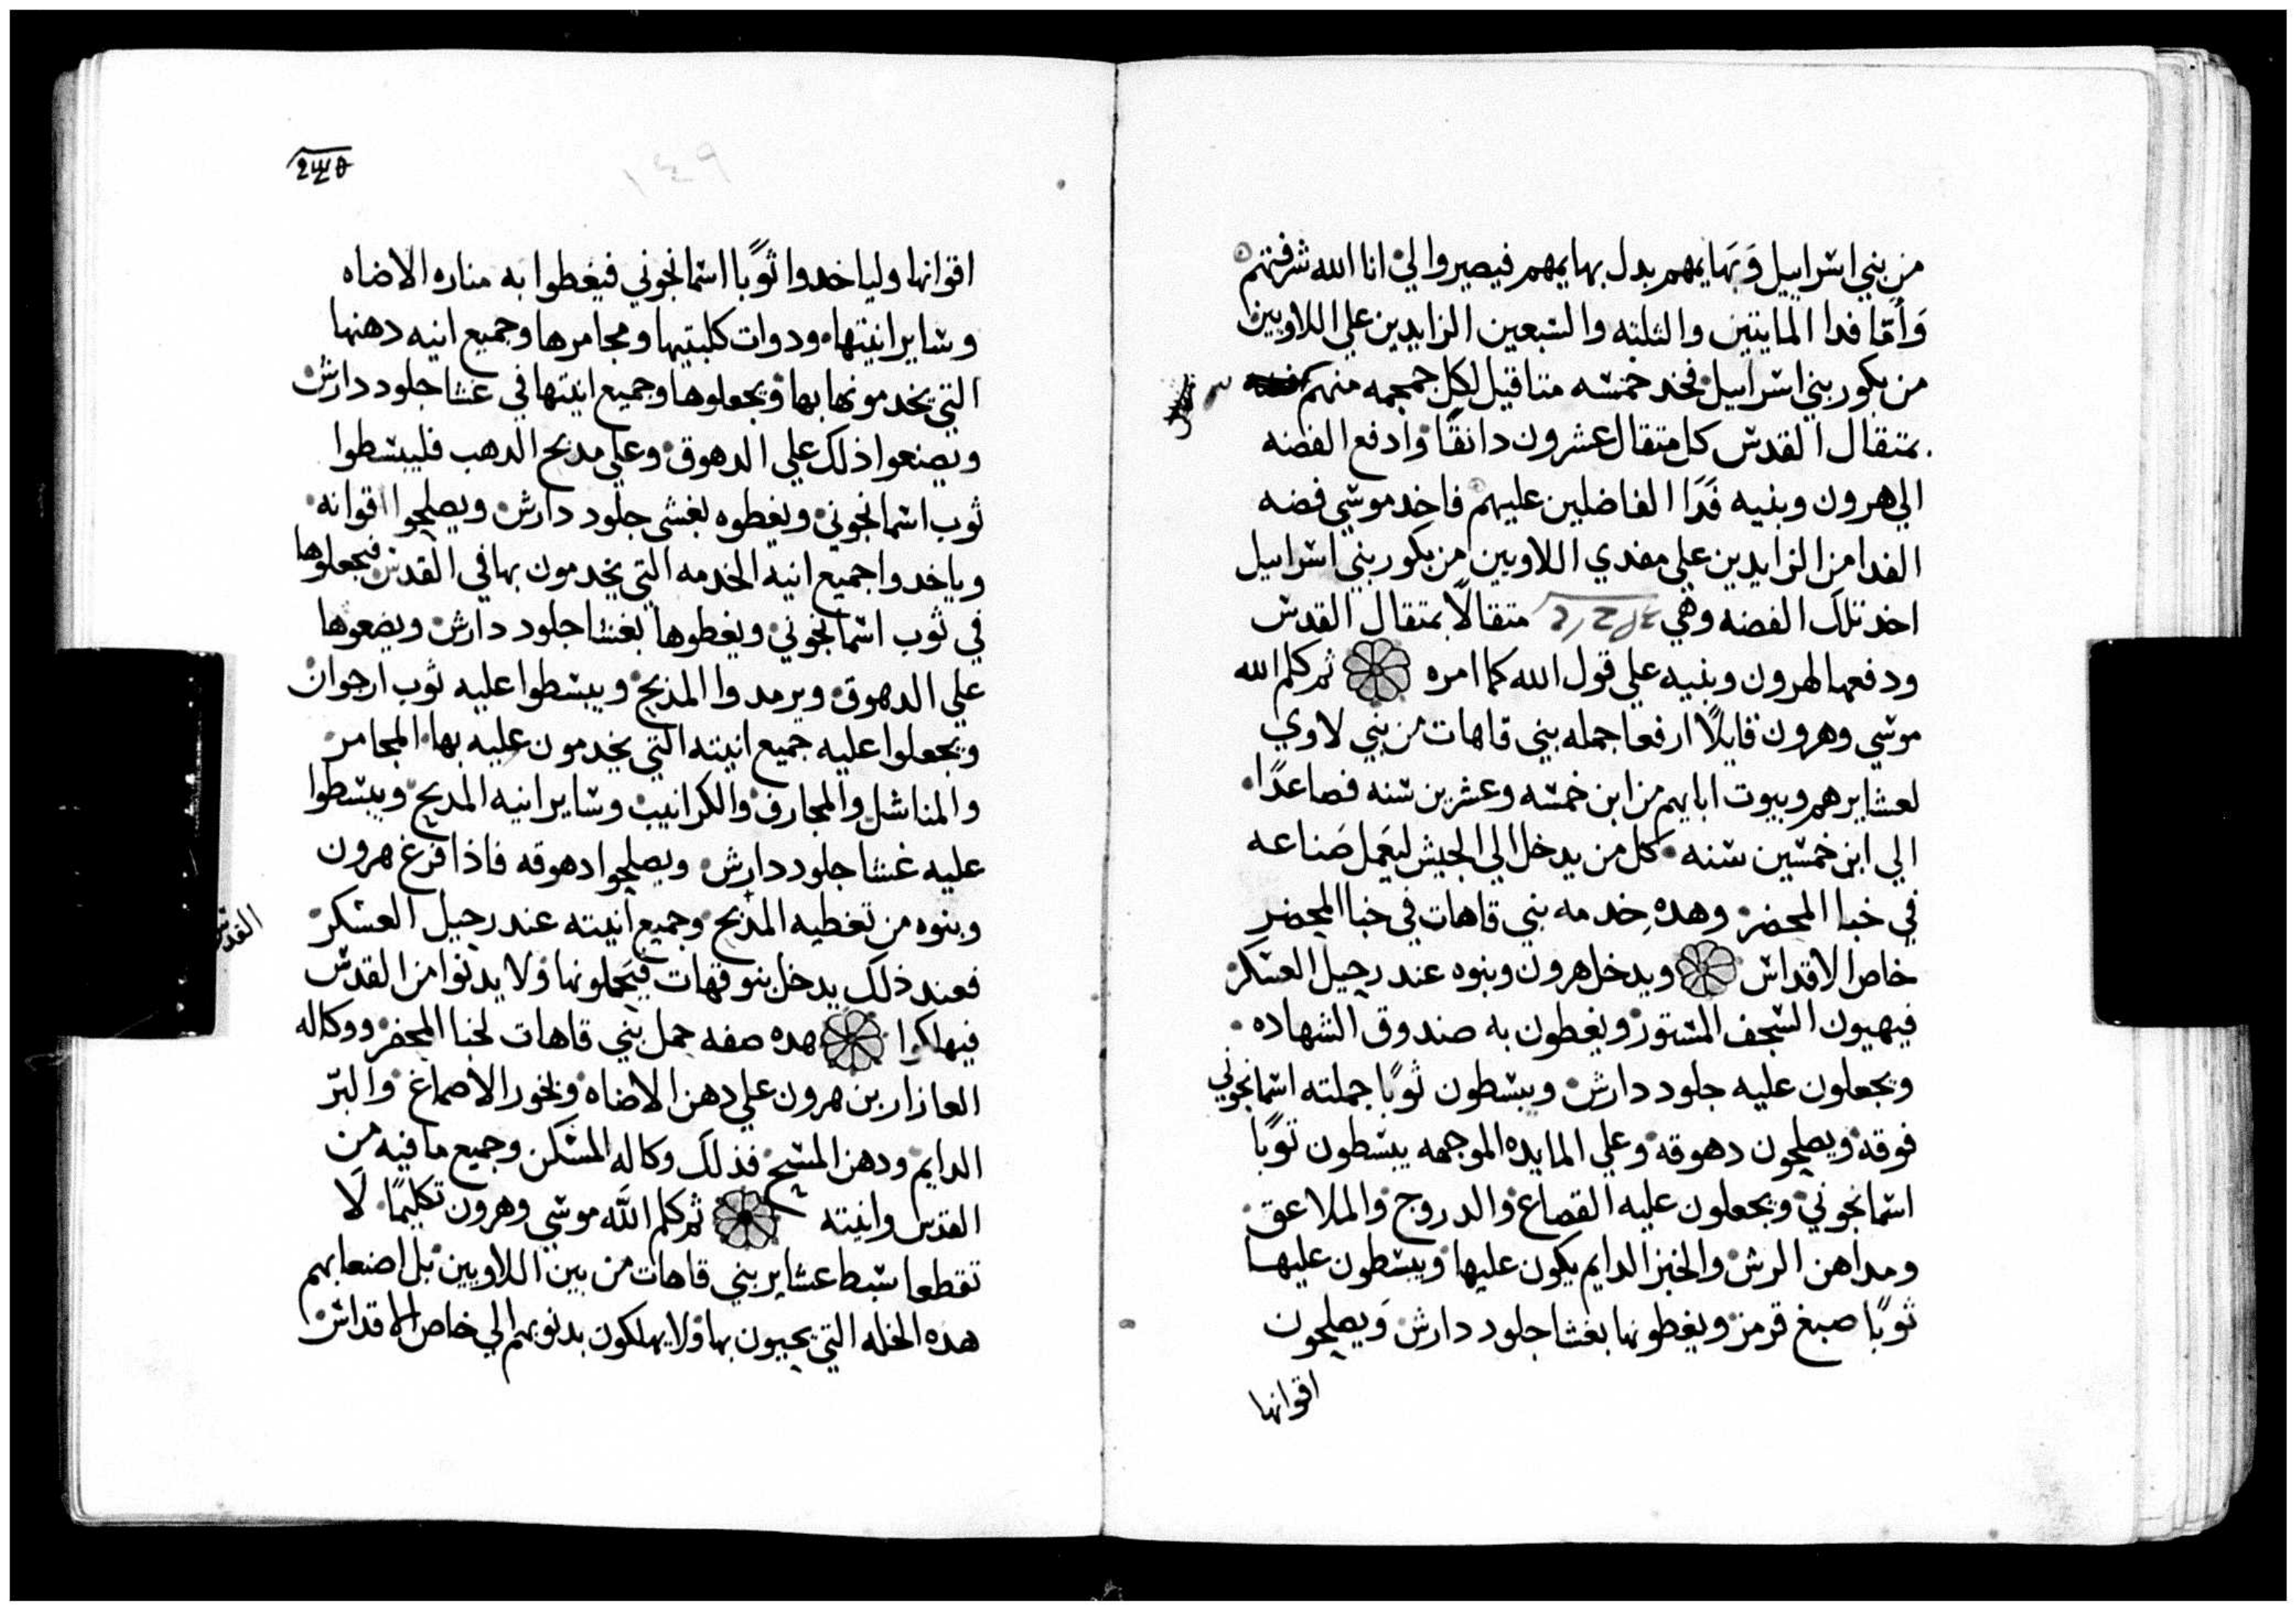 من بني اسراييل وَبَهايمهم بدل بهايمهم فيصيروا لي انا الله شرفتهم
وَأمّا فدا المايتين والثلثه والسبعين الزايدين علي اللاويين
من بكور بني اسراييل فخد خمسه متاقيل لكل جمجمه منهم
بمتقال القدس كل متقال عشرون دانقًا وادفع الفضه
الي هرون وبنيه فَدَا الفاضلين عليهم فاخد موسي فضه
الفدا من الزايدين علي مفدي اللاويين من بكور بني اسراييل
اخد تلك الفضه وهي متقالًا بمتقال القدس
ودفعها لهرون وبنيه علي قول الله كما امره ثم كلم الله
موسي وهرون قايلًا ارفعا جمله بني قاهات من بني لاوي
لعشايرهم وبيوت ابايهم من ابن خمسه وعشرين سنه فصاعدًا
الي ابن خمسين سنه كل من يدخل الي الجيش ليَعمل صَناعه
في خبا المحضر وهده خدمه بني قاهات في خبا المحضر
خاص الاقداس ويدخل هرون وبنوه عند رحيل العسكر
فيهيون السجف المستور ويغطون به صندوق الشهاده
ويجعلون عليه جلود دارش ويبسطون ثوبًا جملته اسمانجوني
فوقه ويصلحون دهوقه وعلي المايده الموجهه يبسطون توبًا
اسمانجوني ويجعلون عليه القصاع والدروج والملاعق
ومداهن الرش والخبز الدايم يكون عليها ويبسطون عليها
ثوبًا صبغ قرمز ويغطونها بغشا جلود دارش وَيصلحون
اقوانها
١٤٩
اقوانها ولياخدوا ثوبًا اسمانجوني فيغطوا به مناره الاضاه
وساير انيتها ودوات كلبتيها ومجامرها وجميع انيه دهنها
التي يخدمونها بها ويجعلوها وجميع انيتها في غشا جلود دارش
ويصنعوا ذلك علي الدهوق وعلي مدبح الدهب فليبسطوا
ثوب اسمانجوني ويغطوه بغشي جلود دارش ويصلحوا اقوانه
وياخدوا جميع انيه الخدمه التي يخدمون بها في القدس فيجعلوها
في ثوب اسمانجوني ويغطوها بغشا جلود دارش ويضعوها
علي الدهوق ويرمدوا المذبح ويبسطوا عليه ثوب ارجوان
ويجعلوا عليه جميع انيته التي يخدمون عليه بها المجامر
والمناشل والمجارف والكرانيب وساير انيه المدبح ويبسطوا
عليه غشا جلود دارش ويصلحوا دهوقه فاذا فرغ هرون
وبنوه من تغطيه المذبح وجميع انيته عند رحيل العسكر
فعند ذلك يدخل بنو قهات فيَحملونها ولا يدنوا من القدس
فيهلكوا هده صفه حمل بني قاهات لخبا المحضر ووكاله
العازار بن هرون علي دهن الاضاه وبخور الاصماغ والبرّ
الدايم ودهن المسح فذلك وكاله المسكن وجميع ما فيه من
القدس وانيته ثم كلم اللّه موسي وهرون تكليمًا لَا
تقطعا سبط عشاير بني قاهات من بين اللاويين بل اصنعا بهم
هده الخله التي يحيون بها ولا يهلكون بدنوهم الي خاص الاقداس
القدس